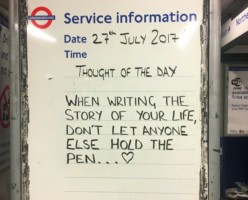 Service information
Date 27th JULY 2017
Time
THOUGHT OF THE DAY
WHEN WRITING THE
STORY OF YOUR LIFE,
DON'T LET ANYONE
ELSE HOLD THE
PEN...♡